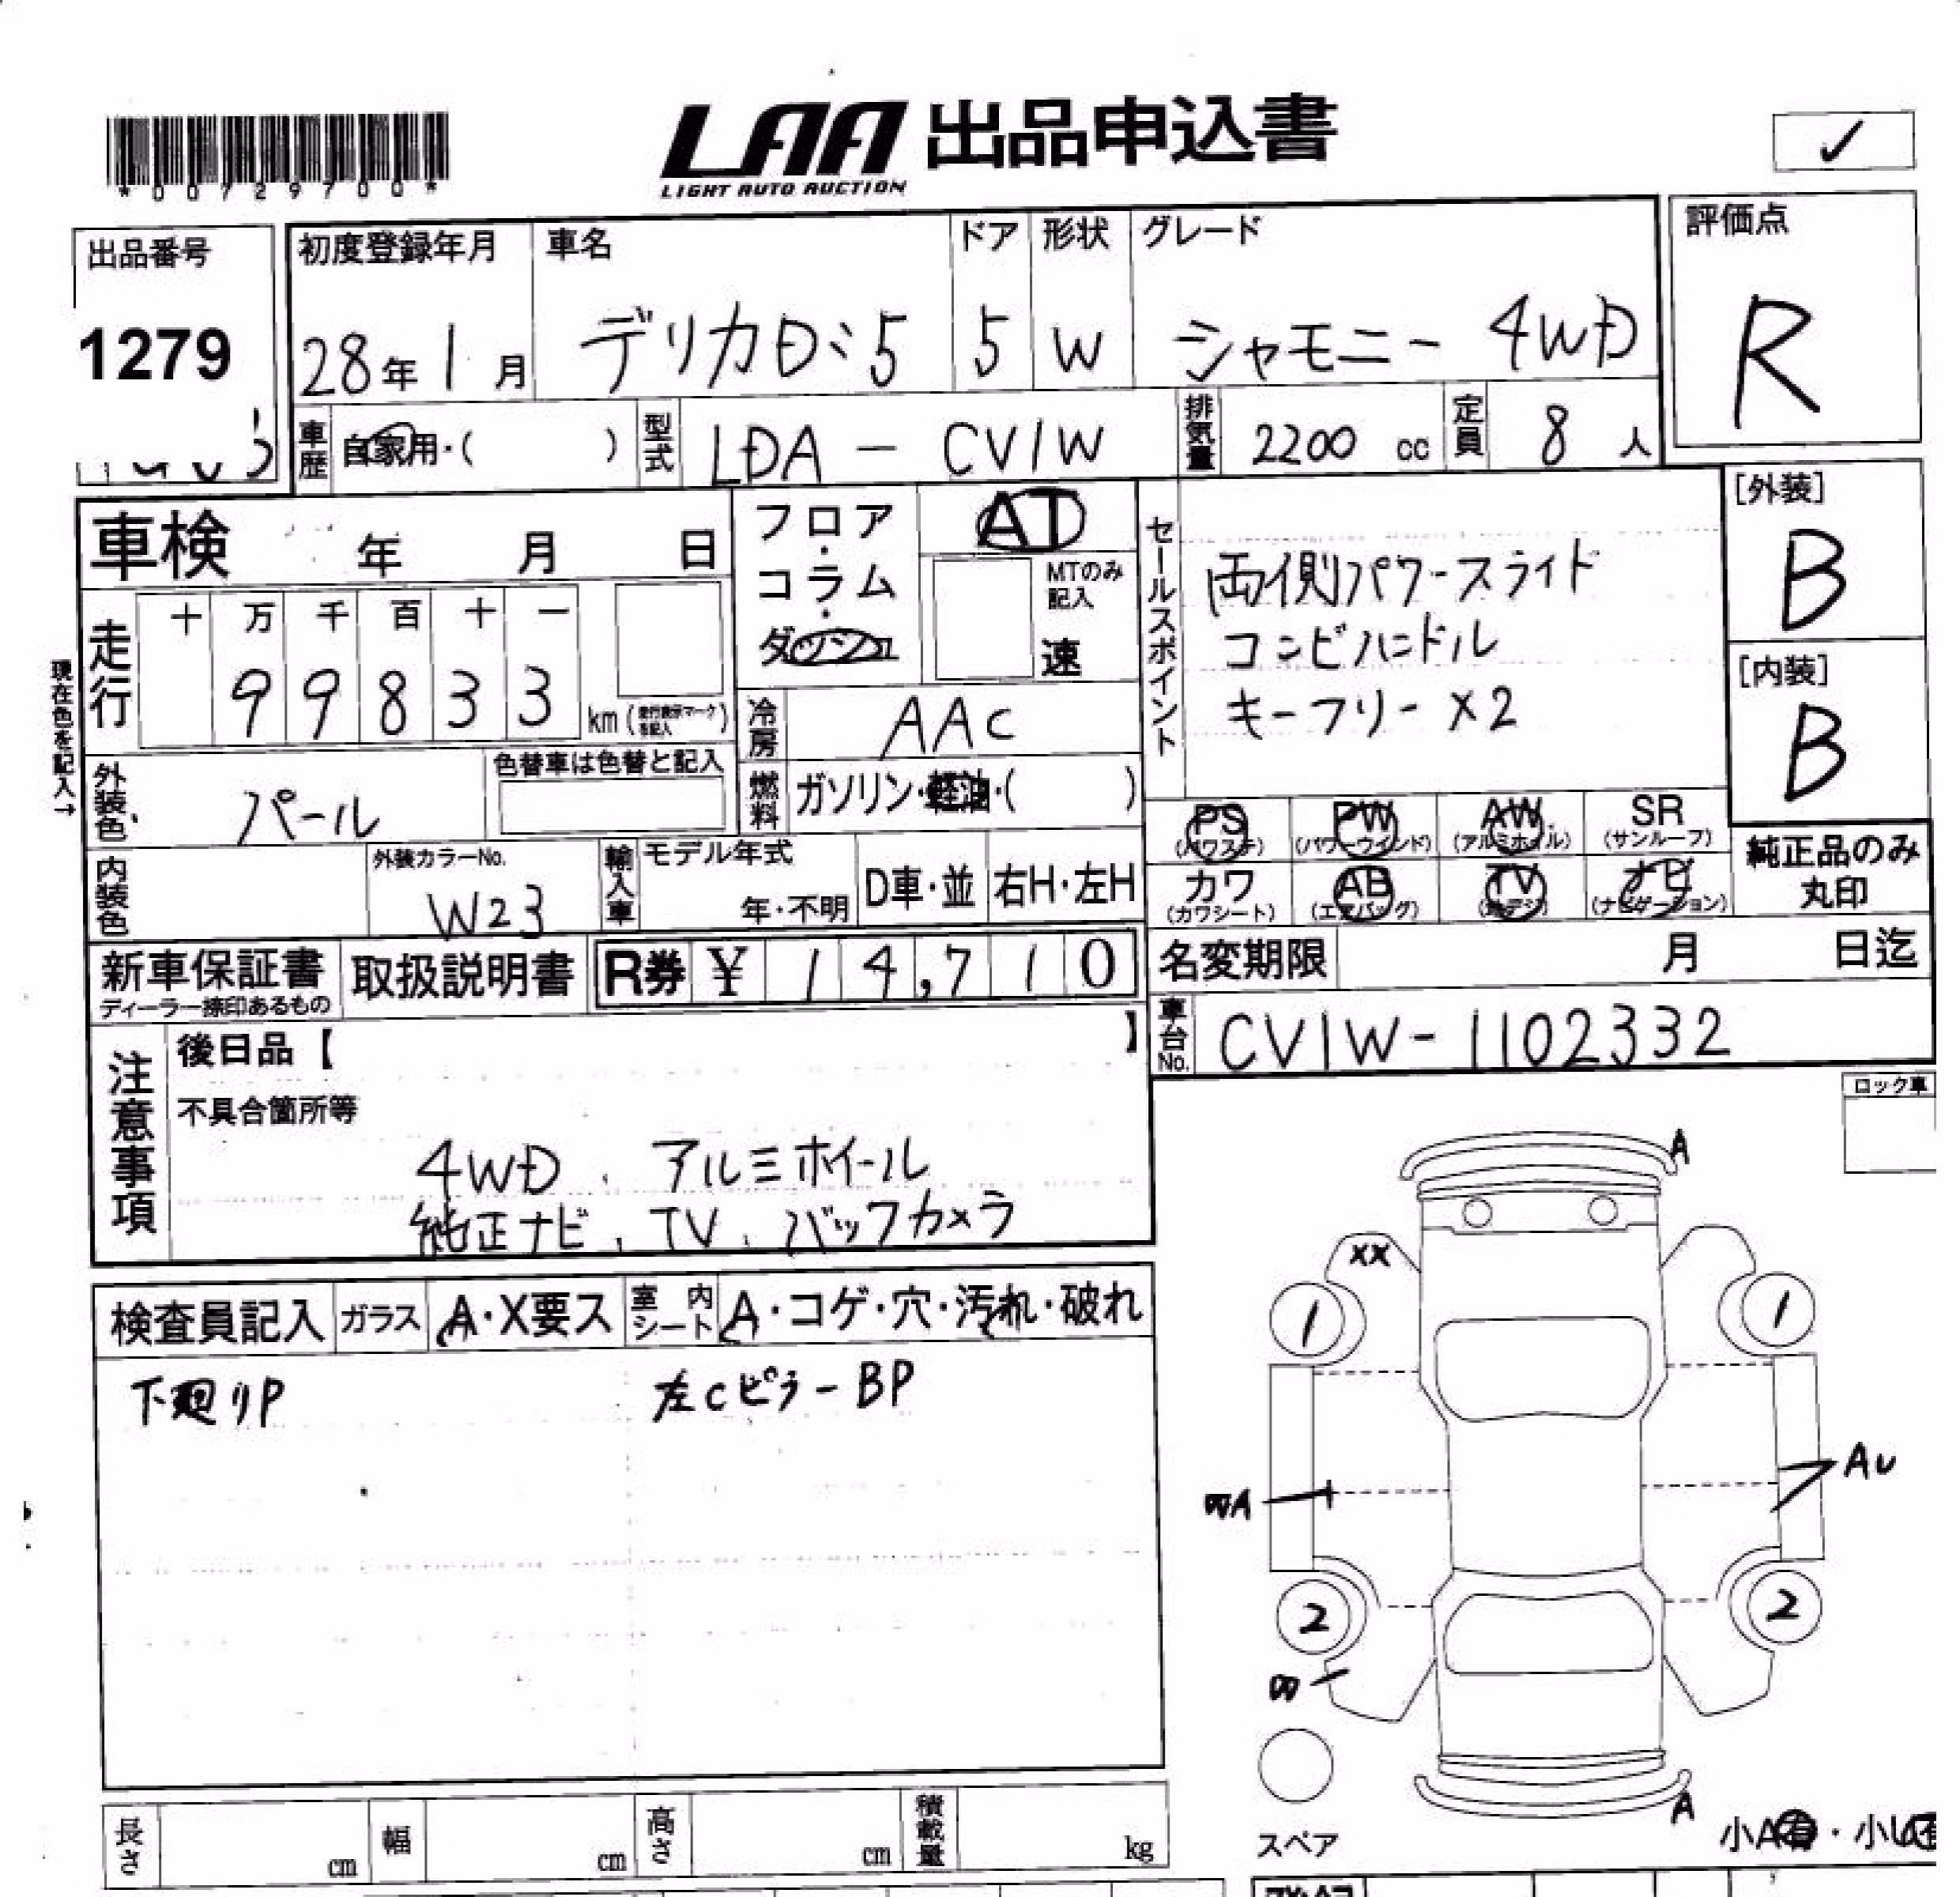 LAA 出品申込書
LIGHT AUTO AUCTION
*00729700*
✓
出品番号
1279
初度登録年月
28年1月
車名
デリカD:5
ドア
5
形状
W
グレード
シャモニー 4WD
評価点
R
車歴
自家用・( )
型式
LDA-CV1W
排気量
2200 cc
定員
8人
[外装]
B
[内装]
B
車検 年 月 日
現在色を記入→
走行
十 万 千 百 十 一
9 9 8 3 3
km(走行表示マークを記入)
フロア・コラム・ダッシュ
AT
MTのみ記入
速
冷房
AAC
燃料
ガソリン・軽油・( )
セールスポイント
両側パワースライド
コンビハンドル
キーフリー×2
外装色
パール
色替車は色替と記入
内装色
外装カラーNo.
W23
輸入車
モデル年式
年・不明
D車・並
右H・左H
PS
(パワステ)
PW
(パワーウインド)
AW
(アルミホイル)
SR
(サンルーフ)
カワ
(カワシート)
AB
(エアバッグ)
TV
(地デジ)
ナビ
(ナビゲーション)
純正品のみ
丸印
新車保証書
ディーラー捺印あるもの
取扱説明書
R券 ¥ 14,710
名変期限 月 日迄
車台No.
CV1W-1102332
注意事項
後日品【 】
不具合箇所等
4WD、アルミホイール
純正ナビ、TV、バックカメラ
ロック車
検査員記入
ガラス
A・X要ス
室内シート
A・コゲ・穴・汚れ・破れ
下廻りP
左Cピラー BP
A
XX
1
1
AU
2
2
A
スペア
長さ cm
幅 cm
高さ cm
積載量 kg
小A有・小U有